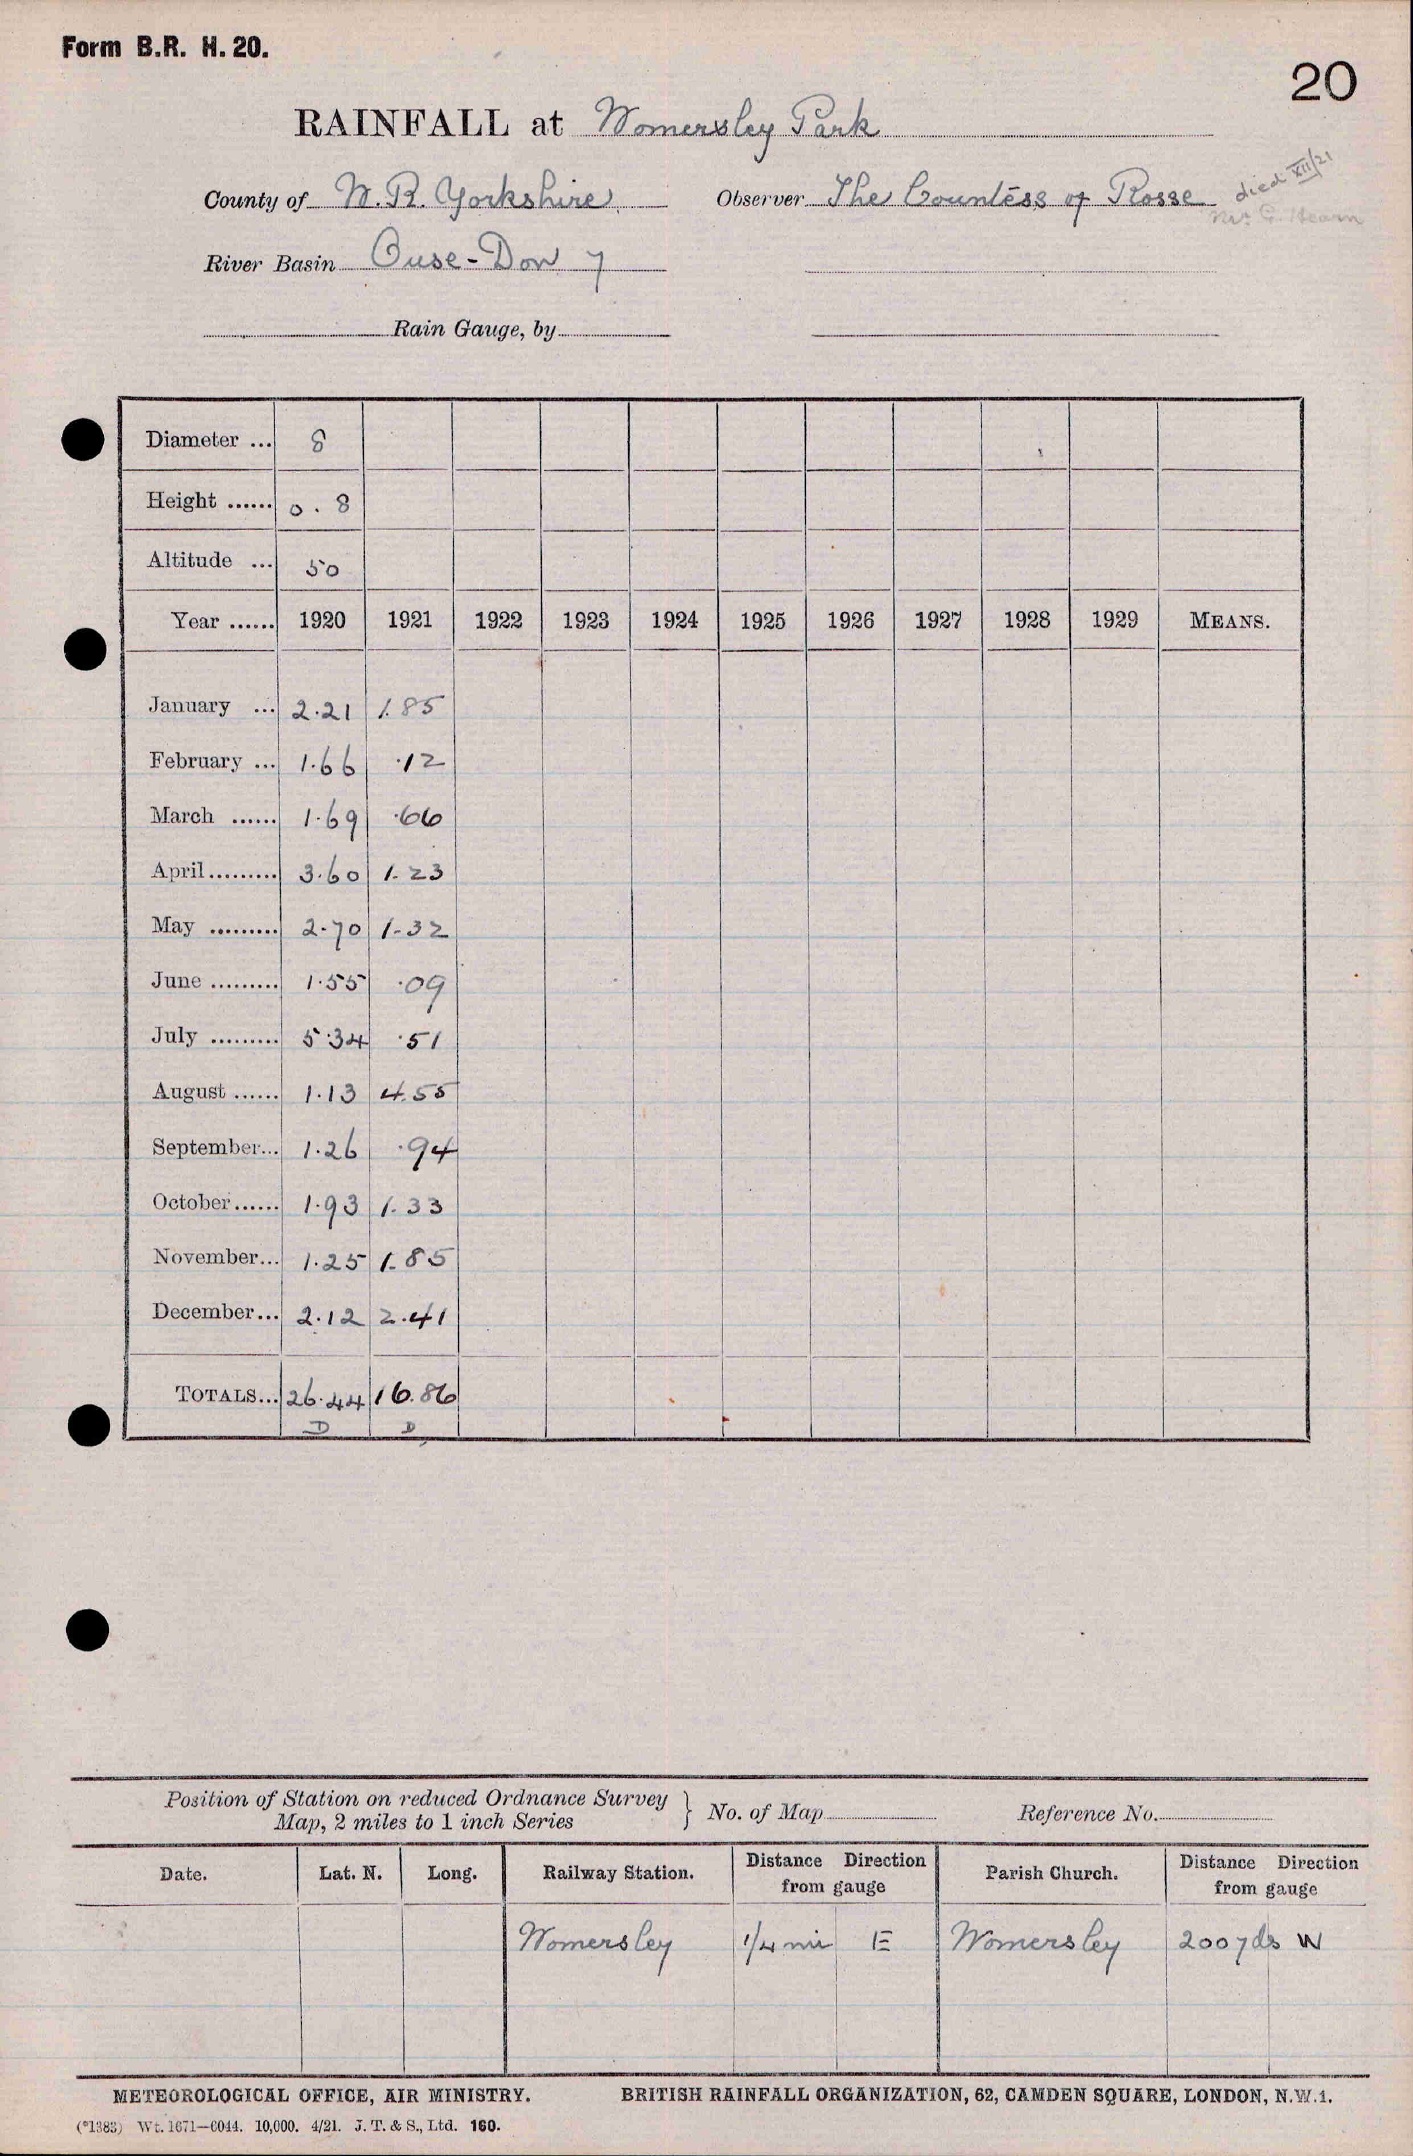 Form B.R. H. 20.
20
RAINFALL at Womersley Park
County of W. R. Yorkshire. Observer The Countess of Rosse died XII/21
Mr G. Hearn
River Basin Ouse-Don 7
Rain Gauge, by
Diameter ... 8
Height ...... 0.8
Altitude ... 50
Year ...... 1920 1921 1922 1923 1924 1925 1926 1927 1928 1929 MEANS.
January ... 2.21 1.85
February ... 1.66 .12
March ...... 1.69 .66
April ......... 3.60 1.23
May ......... 2.70 1.32
June ......... 1.55 .09
July ......... 5.34 .51
August ...... 1.13 4.55
September... 1.26 .94
October...... 1.93 1.33
November... 1.25 1.85
December... 2.12 2.41
TOTALS... 26.44 16.86
D D
Position of Station on reduced Ordnance Survey
Map, 2 miles to 1 inch Series } No. of Map Reference No.
Date. Lat. N. Long. Railway Station. Distance Direction from gauge Parish Church. Distance Direction from gauge
Womersley 1/4 mi E Womersley 200 yds W
METEOROLOGICAL OFFICE, AIR MINISTRY. BRITISH RAINFALL ORGANIZATION, 62, CAMDEN SQUARE, LONDON, N.W.1.
(*1383) Wt. 1671—6044. 10,000. 4/21. J. T. & S., Ltd. 160.